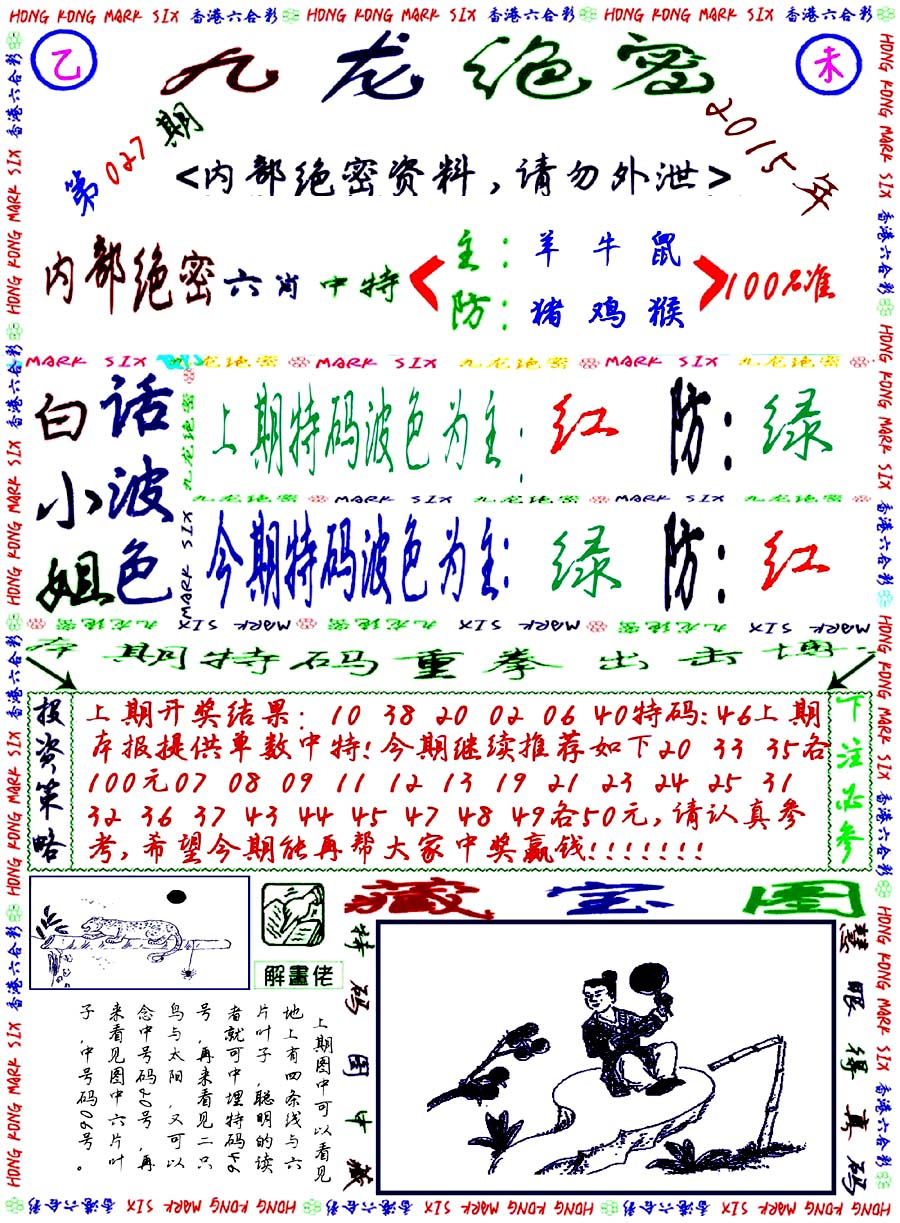 香港六合彩 HONG KONG MARK SIX 香港六合彩 HONG KONG MARK SIX 香港六合彩 HONG KONG MARK SIX 香港六合彩
乙
九龙绝密
未
第027期
2015年
<内部绝密资料,请勿外泄>
内部绝密六肖中特
主:羊牛鼠
防:猪鸡猴
100%准
MARK SIX 九龙绝密 MARK SIX 九龙绝密 MARK SIX 九龙绝密
白小姐
话波色
上期特码波色为主:红 防:绿
九龙绝密 MARK SIX 九龙绝密 MARK SIX 九龙绝密
今期特码波色为主:绿 防:红
九龙绝密 MARK SIX 九龙绝密 MARK SIX 九龙绝密 MARK SIX
本期特码重拳出击博
投资策略
上期开奖结果:10 38 20 02 06 40特码:46上期
本报提供单数中特!今期继续推荐如下20 33 35各
100元07 08 09 11 12 13 19 21 23 24 25 31
32 36 37 43 44 45 47 48 49各50元,请认真参
考,希望今期能再帮大家中奖赢钱!!!!!!!
下注必参
藏宝图
解畫佬
上期图中可以看见
地上有四条线与六
片叶子,聪明的读
者就可中埋特码46
号,再来看见二只
鸟与太阳,又可以
念中号码20号,再
来看见图中六片叶
子,中号码06号。
特码图中藏
慧眼得真码
HONG KONG MARK SIX 香港六合彩 HONG KONG MARK SIX 香港六合彩 HONG KONG MARK SIX 香港六合彩